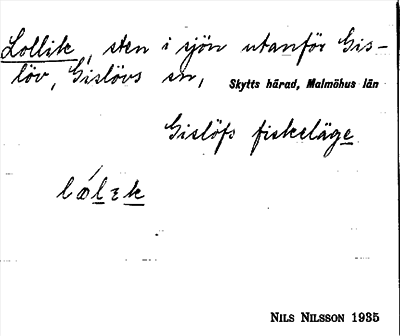 Lollik, sten i sjön utanför Gis-
löv, Gislövs sn, Skytts härad, Malmöhus län
Gislöfs fiskeläge
lǽlɪk
NILS NILSSON 1935